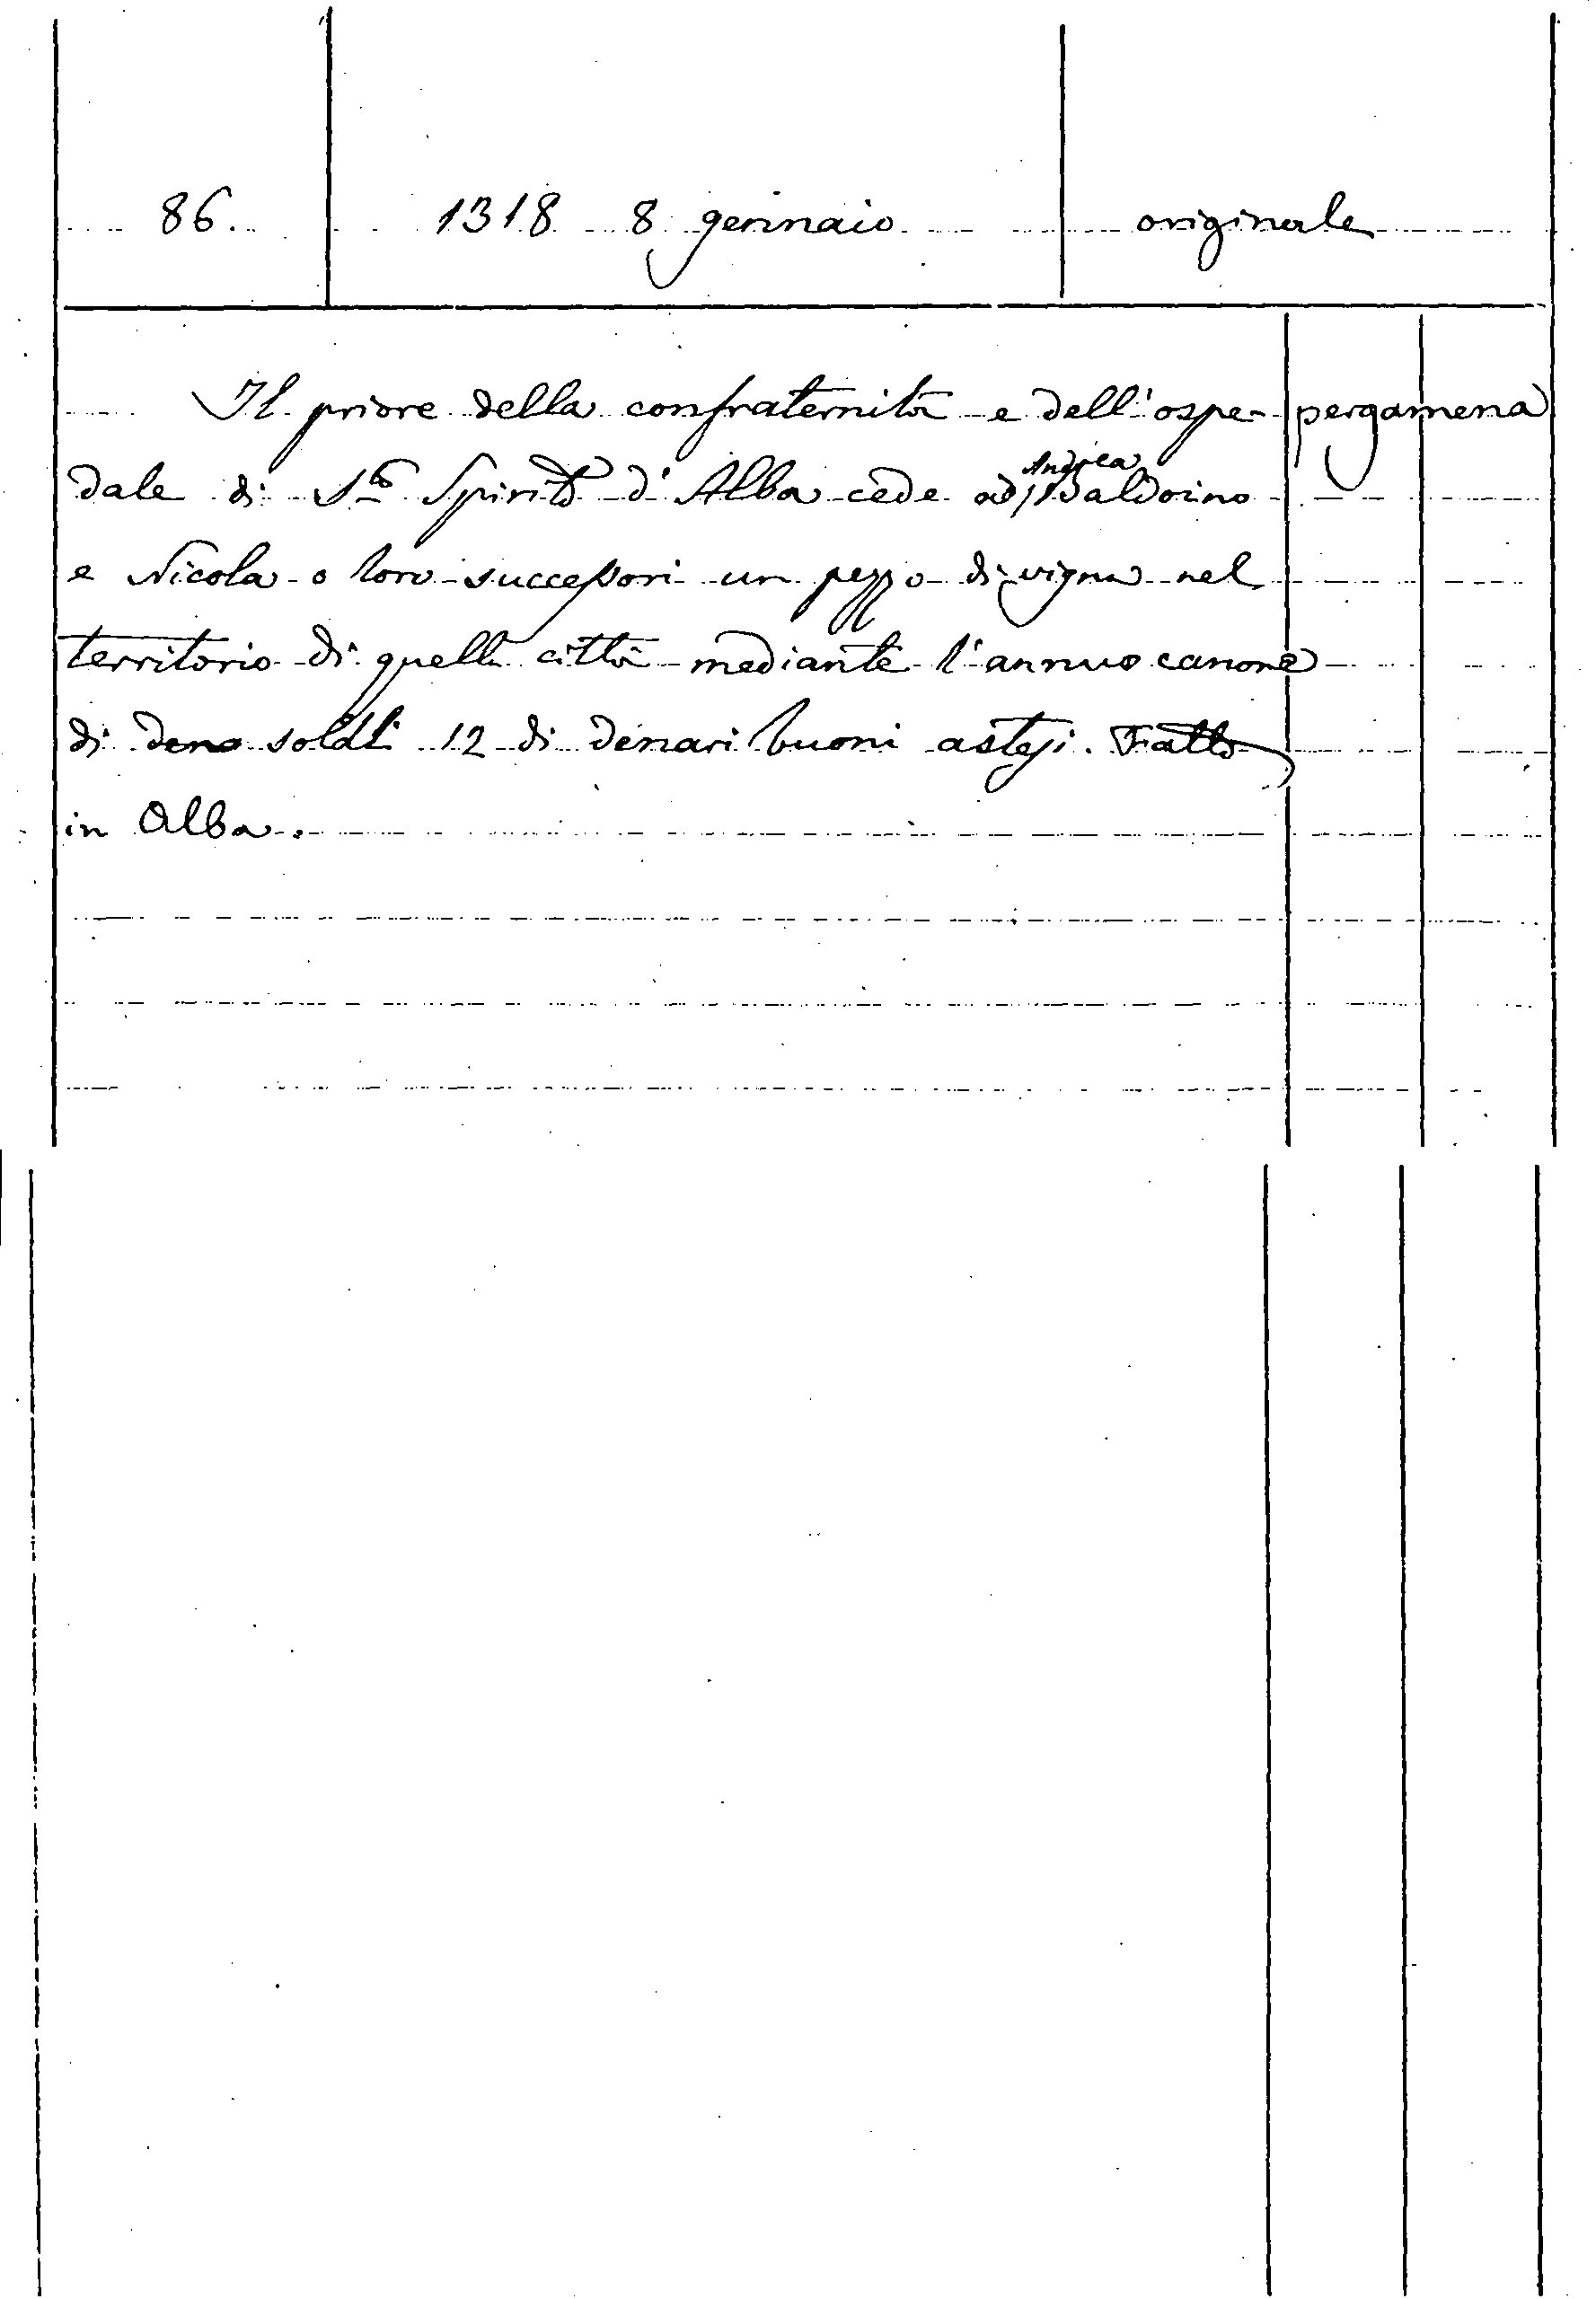 86. 1318 8 gennaio originale
Il priore della confraternità e dell'ospe- pergamena
dale di Sto Spirito d'Alba cede ad Andrea Baldoino
e Nicola o loro successori un pezzo di vigna nel
territorio di quella città mediante l'annuo canone
di dena soldi 12 di denari buoni astesi. Fatto
in Alba.